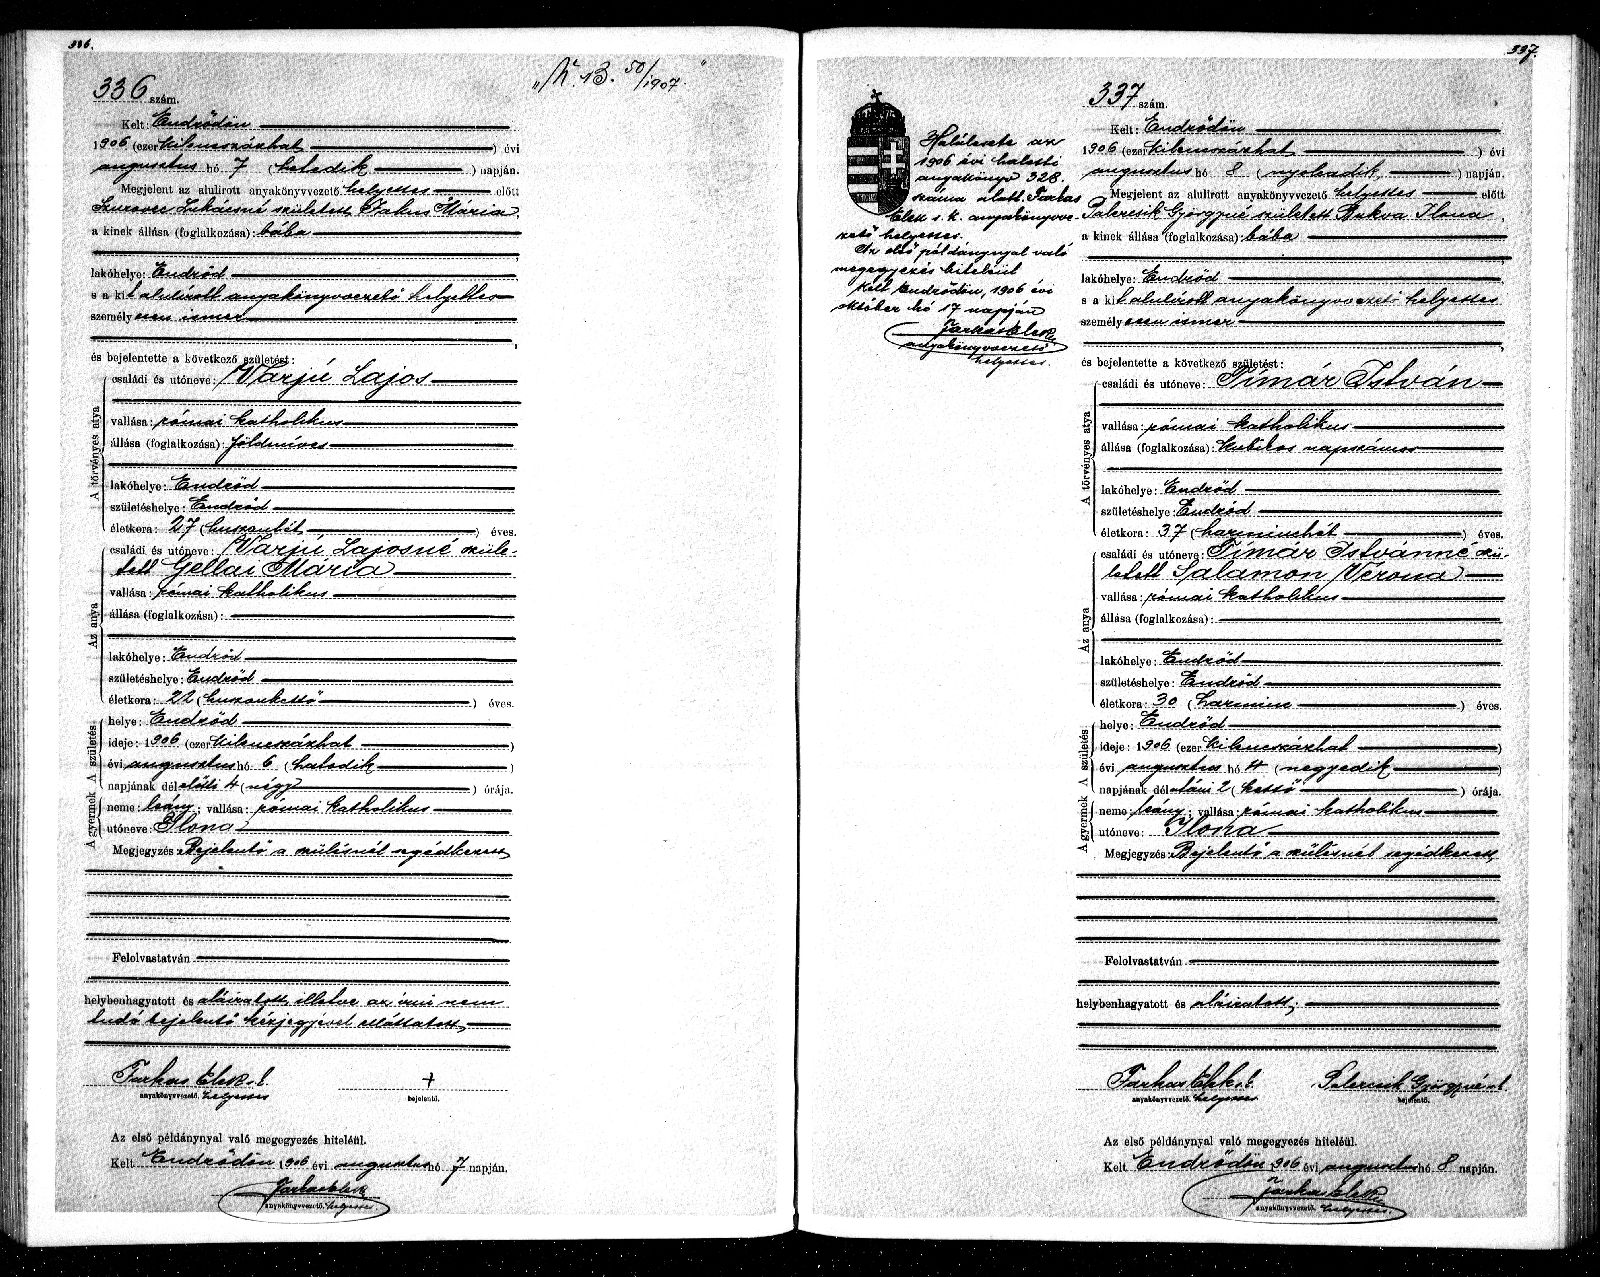 336.
336 szám.
„N. 13. 50/1907.”
Kelt: Endrődön
1906 (ezer kilencszázhat ) évi
augusztus hó 7 (hetedik ) napján.
Megjelent az alulirott anyakönyvvezető helyettes előtt
Szurover Lukácsné született Jakus Mária,
a kinek állása (foglalkozása): bába
lakóhelye: Endrőd
s a kit alulírott anyakönyvvezető helyettes
személyesen ismer
és bejelentette a következő születést:
A törvényes atya
családi és utóneve: Varjú Lajos
vallása: római katholikus
állása (foglalkozása): földmíves
lakóhelye: Endrőd
születéshelye: Endrőd
életkora: 27 (huszonhét ) éves.
Az anya
családi és utóneve: Varjú Lajosné szüle-
tett Gellai Mária
vallása: római katholikus
állása (foglalkozása):
lakóhelye: Endrőd
születéshelye: Endrőd
életkora: 22 (huszonkettő ) éves.
A gyermek A születés
helye: Endrőd
ideje: 1906 (ezer kilencszázhat )
évi augusztus hó 6 (hatodik )
napjának délelőtti 4 (négy ) órája.
neme: leány; vallása: római katholikus
utóneve: Ilona
Megjegyzés: Bejelentő a szülésnél segédkezett,
Felolvastatván
helybenhagyatott és aláiratott, illetve az írni nem
tudó bejelentő kézjegyével elláttatott,
Farkas Elek s.k.
+
anyakönyvvezető. helyettes
bejelentő.
Az első példánynyal való megegyezés hiteléül.
Kelt Endrődön 1906 évi augusztus hó 7 napján.
Farkas Elek
anyakönyvvezető. helyettes
337.
337 szám.
Halálesete az
1906 évi halotti
anyakönyv 328.
száma alatt. Farkas
Elek s. k. anyakönyvve-
zető helyettes.
Az első példánynyal való
megegyezés hiteléül
Kelt Endrődön, 1906 évi
október hó 17 napján
Farkas Elek
anyakönyvvezető
helyettes.
Kelt: Endrődön
1906 (ezer kilencszázhat ) évi
augusztus hó 8 (nyolcadik ) napján.
Megjelent az alulirott anyakönyvvezető helyettes előtt
Palercsik Györgyné született Bukva Ilona,
a kinek állása (foglalkozása): bába
lakóhelye: Endrőd
s a kit alulírott anyakönyvvezető helyettes
személyesen ismer
és bejelentette a következő születést:
A törvényes atya
családi és utóneve: Tímár István
vallása: római katholikus
állása (foglalkozása): kubikos napszámos
lakóhelye: Endrőd
születéshelye: Endrőd
életkora: 37 (harminchét ) éves.
Az anya
családi és utóneve: Tímár Istvánné szü-
letett Salamon Verona
vallása: római katholikus
állása (foglalkozása):
lakóhelye: Endrőd
születéshelye: Endrőd
életkora: 30 (harminc ) éves.
A gyermek A születés
helye: Endrőd
ideje: 1906 (ezer kilencszázhat )
évi augusztus hó 4 (negyedik )
napjának délutáni 2 (kettő ) órája.
neme: leány; vallása: római katholikus
utóneve: Ilona
Megjegyzés: Bejelentő a szülésnél segédkezett,
Felolvastatván
helybenhagyatott és aláiratott;
Farkas Elek s.k.
Palercsik Györgyné s.k.
anyakönyvvezető. helyettes
bejelentő.
Az első példánynyal való megegyezés hiteléül.
Kelt Endrődön 1906 évi augusztus hó 8 napján.
Farkas Elek
anyakönyvvezető. helyettes.